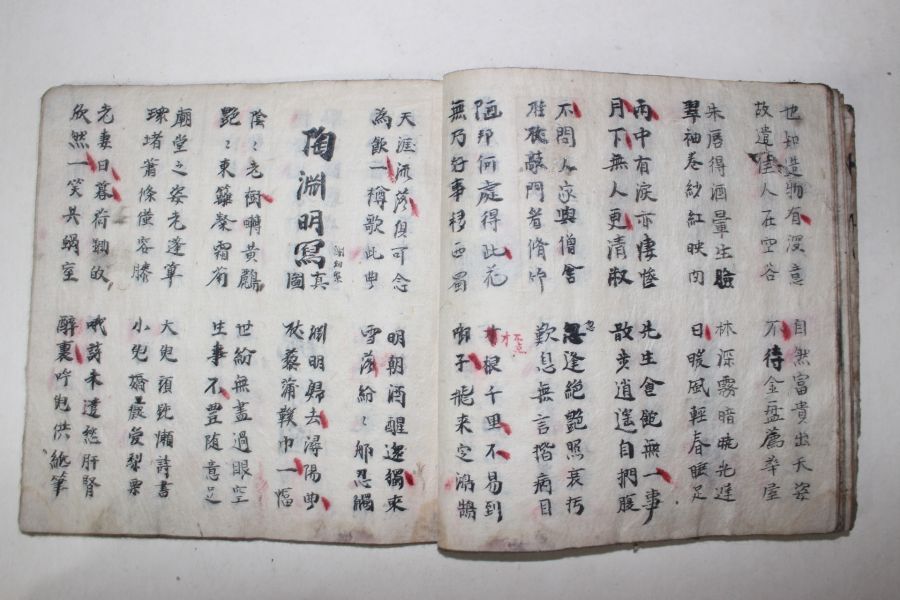 也知造物有深意
故遣佳人在空谷
自然富貴出天姿
不待金盤薦華屋
朱唇得酒暈生臉
翠袖卷紗紅映肉
林深霧暗曉光遲
日暖風輕春睡足
雨中有淚亦悽愴
月下無人更清淑
先生食飽無一事
散步逍遙自捫腹
不問人家與僧舍
拄杖敲門看脩竹
忽逢絕艷照衰朽
歎息無言揩病目
陋邦何處得此花
無乃好事移西蜀
寸根千里不易到
啣子飛來定鴻鵠
天涯流落俱可念
為飲一樽歌此曲
明朝酒醒還獨來
雪落紛紛那忍觸
陶淵明寫真圖
謝幼槃
淵明歸去潯陽曲
杖藜蒲鞋巾一幅
陰〻老樹囀黃鸝
艷〻東籬粲霜菊
世紛無盡過眼空
生事不豐随意足
廟堂之姿老蓬蓽
環堵蕭條僅容膝
大兒頑鈍懶詩書
小兒嬌癡愛梨栗
老妻日暮荷鋤
欣然一笑共蝸室
哦詩未遣愁肝腎
醉裏呼兒供紙筆